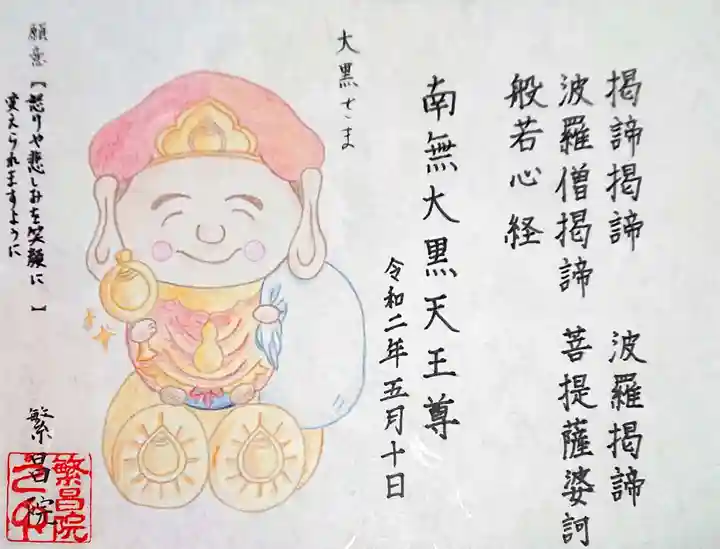 掲諦掲諦 波羅掲諦
波羅僧掲諦 菩提薩婆訶
般若心経
南無大黒天王尊
令和二年五月十日
大黒さま
願意【怒りや悲しみを笑顔に
変えられますように】
繁昌院
繁昌院